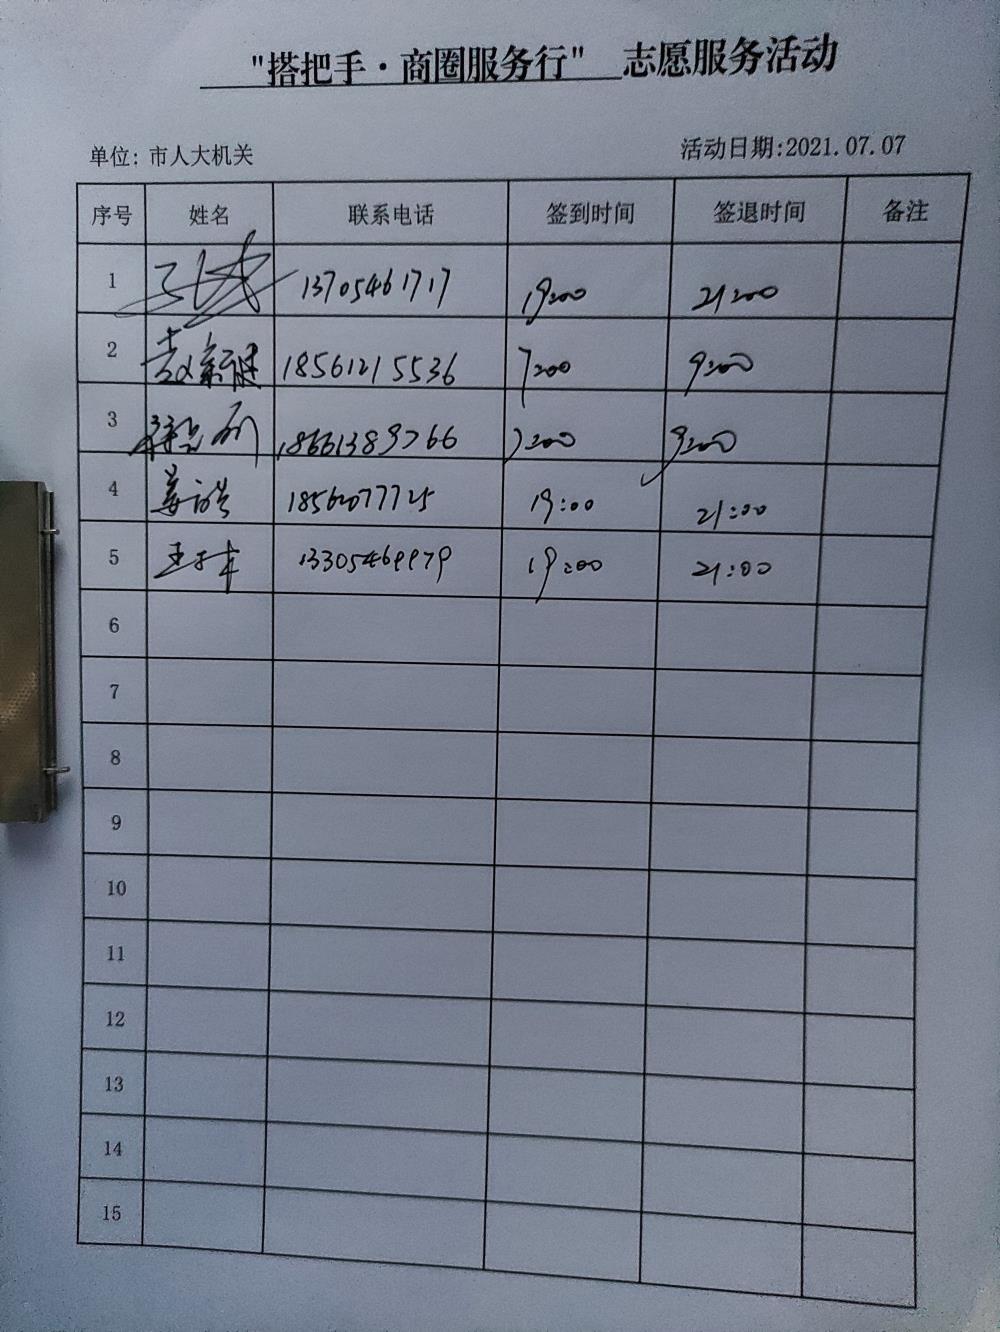 "搭把手·商圈服务行" 志愿服务活动
单位: 市人大机关 活动日期:2021.07.07
序号 姓名 联系电话 签到时间 签退时间 备注
1 13705461717 19:00 21:00
2 18561215536 7:00 9:00
3 18661389766 7:00 9:00
4 姜浩 18562077725 19:00 21:00
5 13305469979 19:00 21:00
6
7
8
9
10
11
12
13
14
15